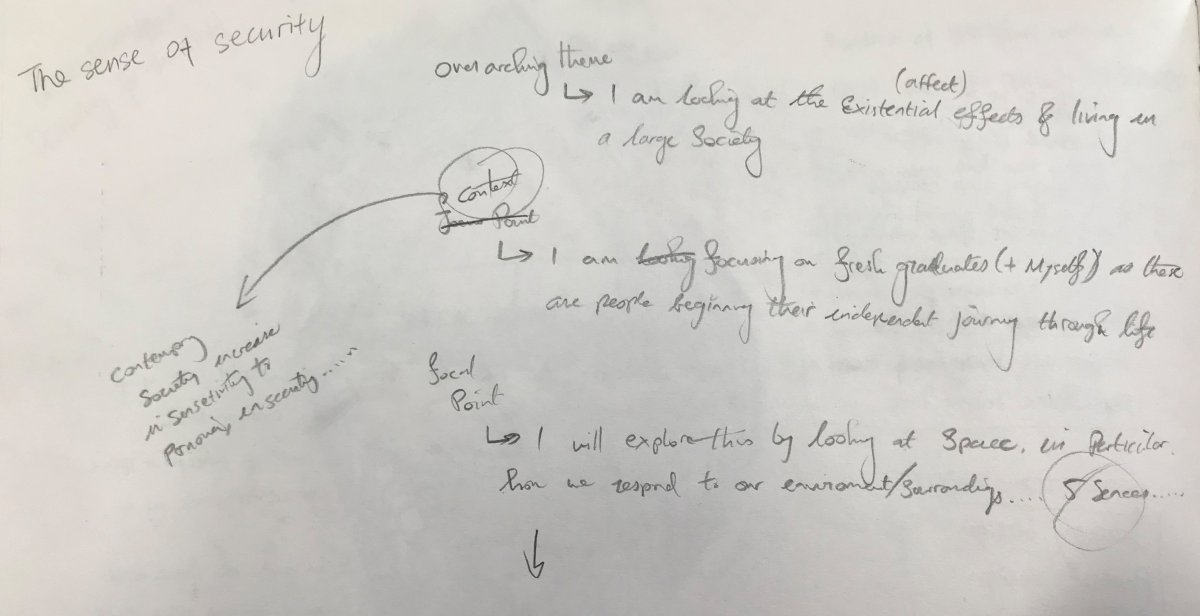 The sense of security
overarching theme
(affect)
↳ I am looking at the Existential effects of living in
a large Society
Context
Focus Point
↳ I am looking focusing on fresh graduates (+ Myself) as these
are people beginning their independent journey through life
Contempory
Society increase
in sensetivity to
insecurity.....
focal
Point
↳ I will explore this by looking at Space, in Perticilar
how we respond to our enviroment/Surrondings.... 5 Sences.....